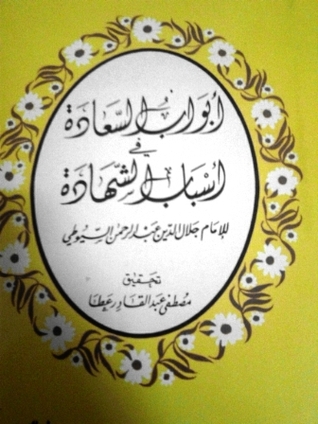 أبواب السعادة
في
أسباب الشهادة
للإمام جلال الدين عبد الرحمن السيوطي
تحقيق
مصطفى عبد القادر عطا